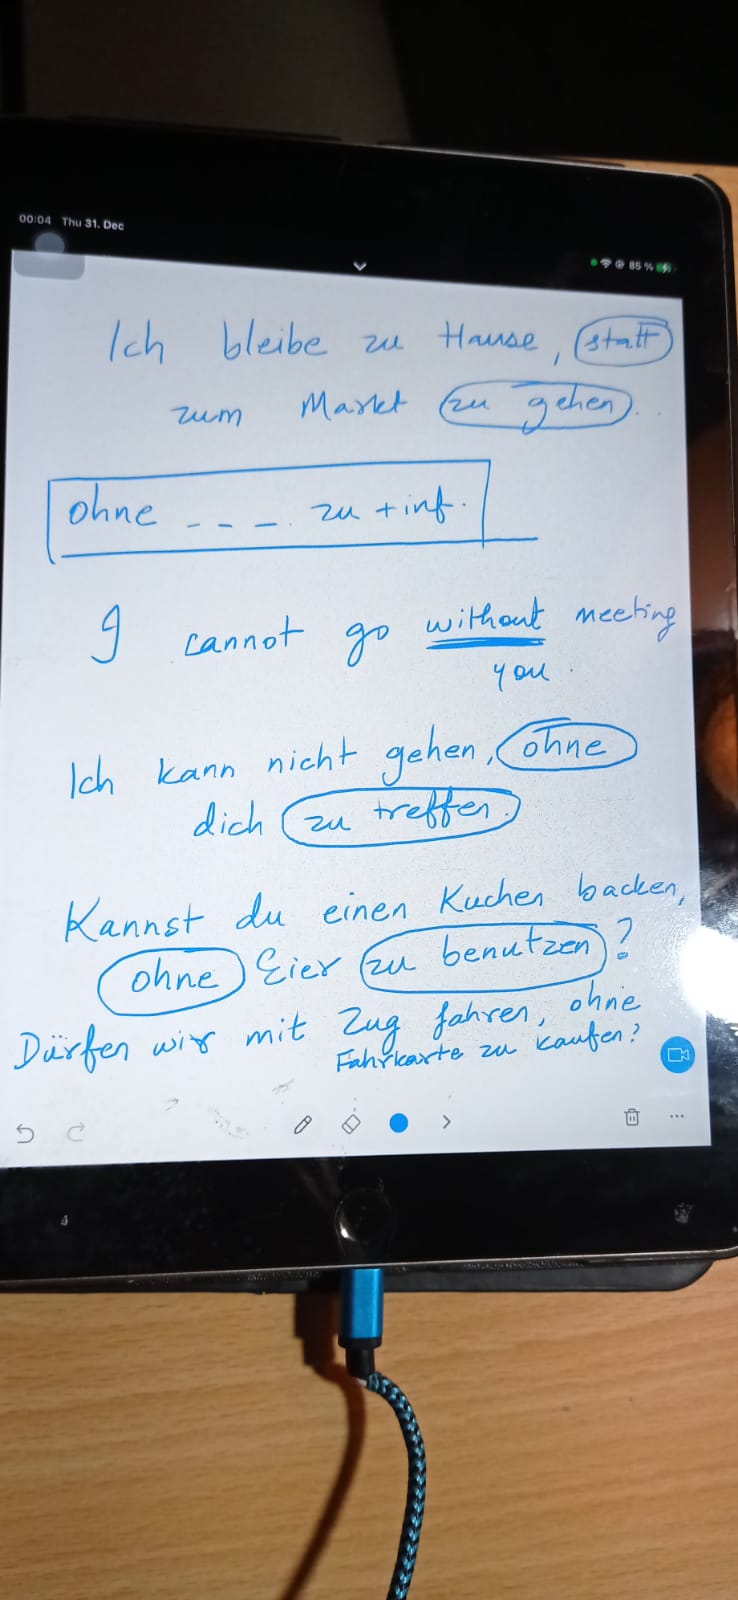 00:04 Thu 31. Dec
85 %
Ich bleibe zu Hause, statt
zum Markt zu gehen.
ohne _ _ _. zu + inf.
I cannot go without meeting
you.
Ich kann nicht gehen, ohne
dich zu treffen.
Kannst du einen Kuchen backen,
ohne Eier zu benutzen?
Dürfen wir mit Zug fahren, ohne
Fahrkarte zu kaufen?